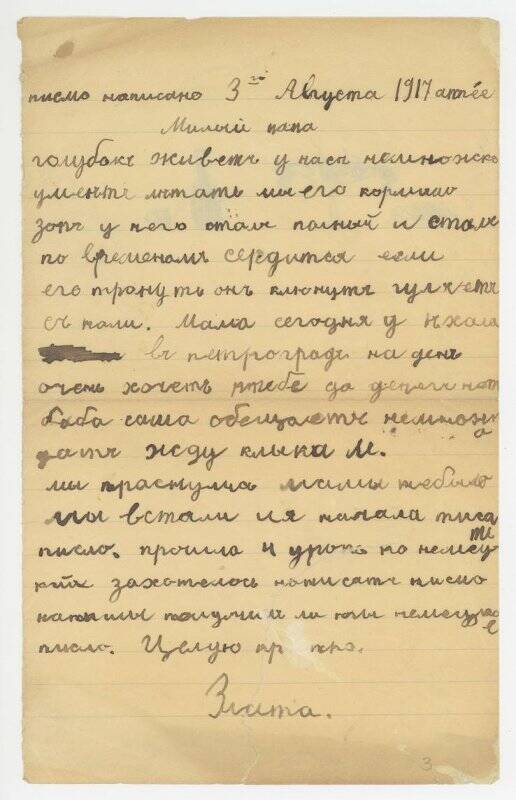 писмо написано 3го Августа 1917 аттѣе
Милый папа
голубокъ живетъ у насъ немножско
уменетъ лѣтать мы его кормимъ
зопъ у него сталъ полный и сталъ
по временамъ сердится если
его тронутъ онъ клюнутъ гуляетъ
съ нами. Мама сегодня уѣхала
въ петроградъ на день
очень хочетъ ктебе да денегъ нѣт
баба саша обещаетъ немножк
дать жду клыка М.
мы праснулись мамы небыло
мы встали и я начала писа
ть
писмо. прошла 4 урока по немец
кій захотелось написать писмо
напиши получилъ ли ты немецкое
писмо. Целую
Злата.
3